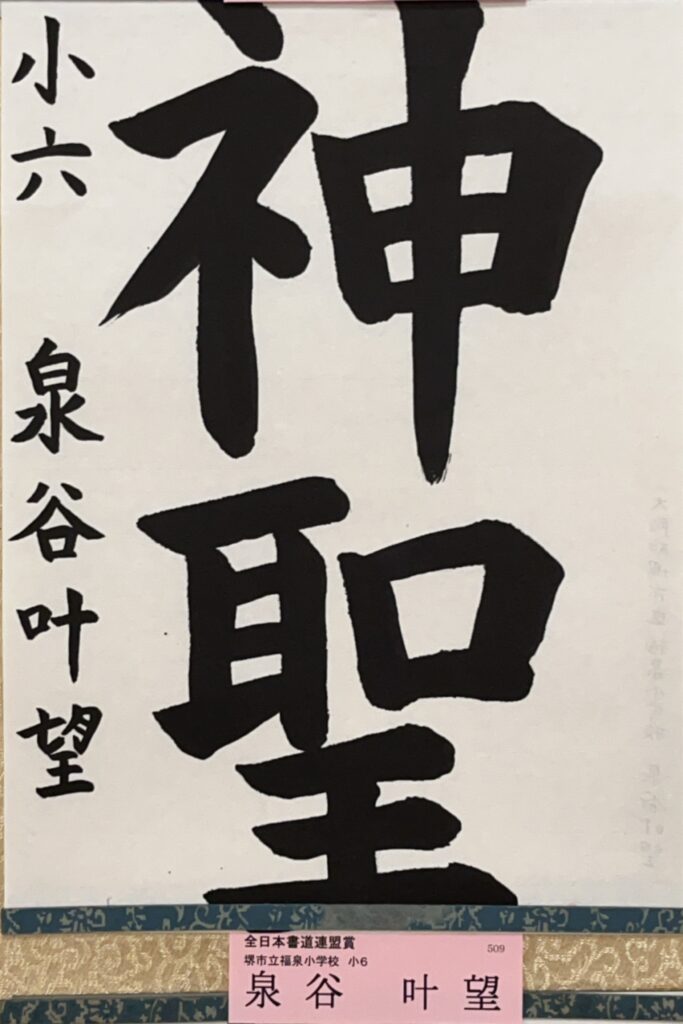 神聖
小六 泉谷叶望
全日本書道連盟賞
509
堺市立福泉小学校 小6
泉谷 叶望